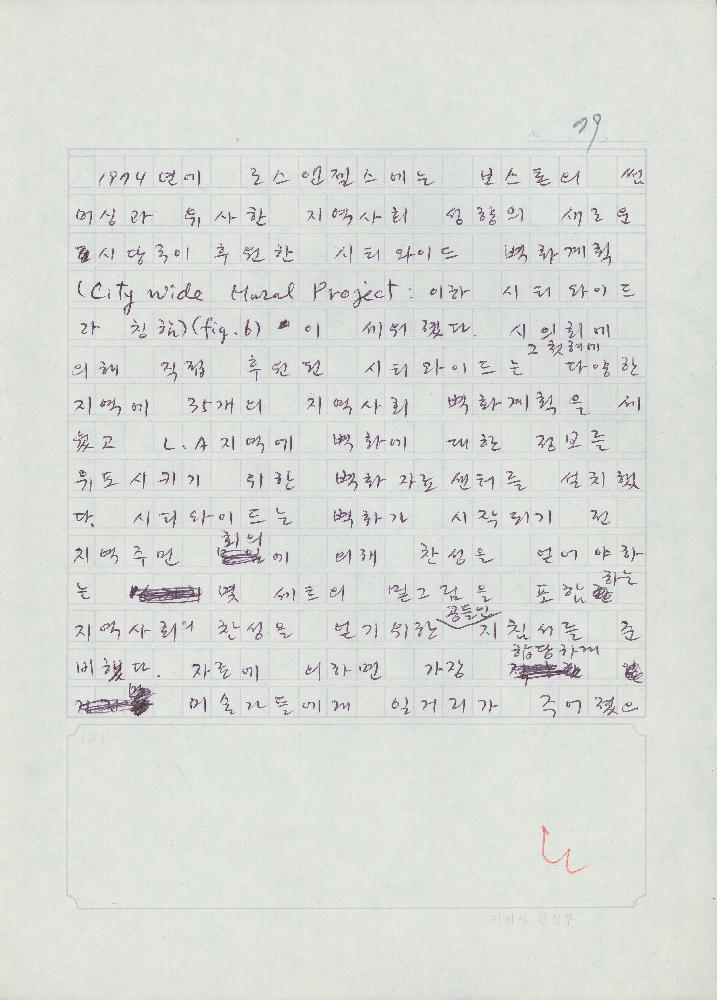 79
1974년에 로스앤젤스에는 보스톤의 썸
머싱과 유사한 지역사회 성향의 새로운
시당국이 후원한 시티와이드 벽화계획
(City Wide Mural Project : 이하 시티와이드
라 칭함)(fig.6)이 세워졌다. 시의회에
그 첫해에
의해 직접 후원된 시티와이드는 다양한
지역에 35개의 지역사회 벽화계획을 세
웠고 L.A지역에 벽화에 대한 정보를
유포시키기 위한 벽화 자료 센터를 설치했
다. 시티와이드는 벽화가 시작되기 전
회의
지역주민 에 의해 찬성을 얻어야하
는 몇 세트의 밑그림을 포함하는
공들인
지역사회의 찬성을 얻기위한 지침서를 준
합당하게
비했다. 자료에 의하면 가장
미술가들에게 일거리가 주어졌으